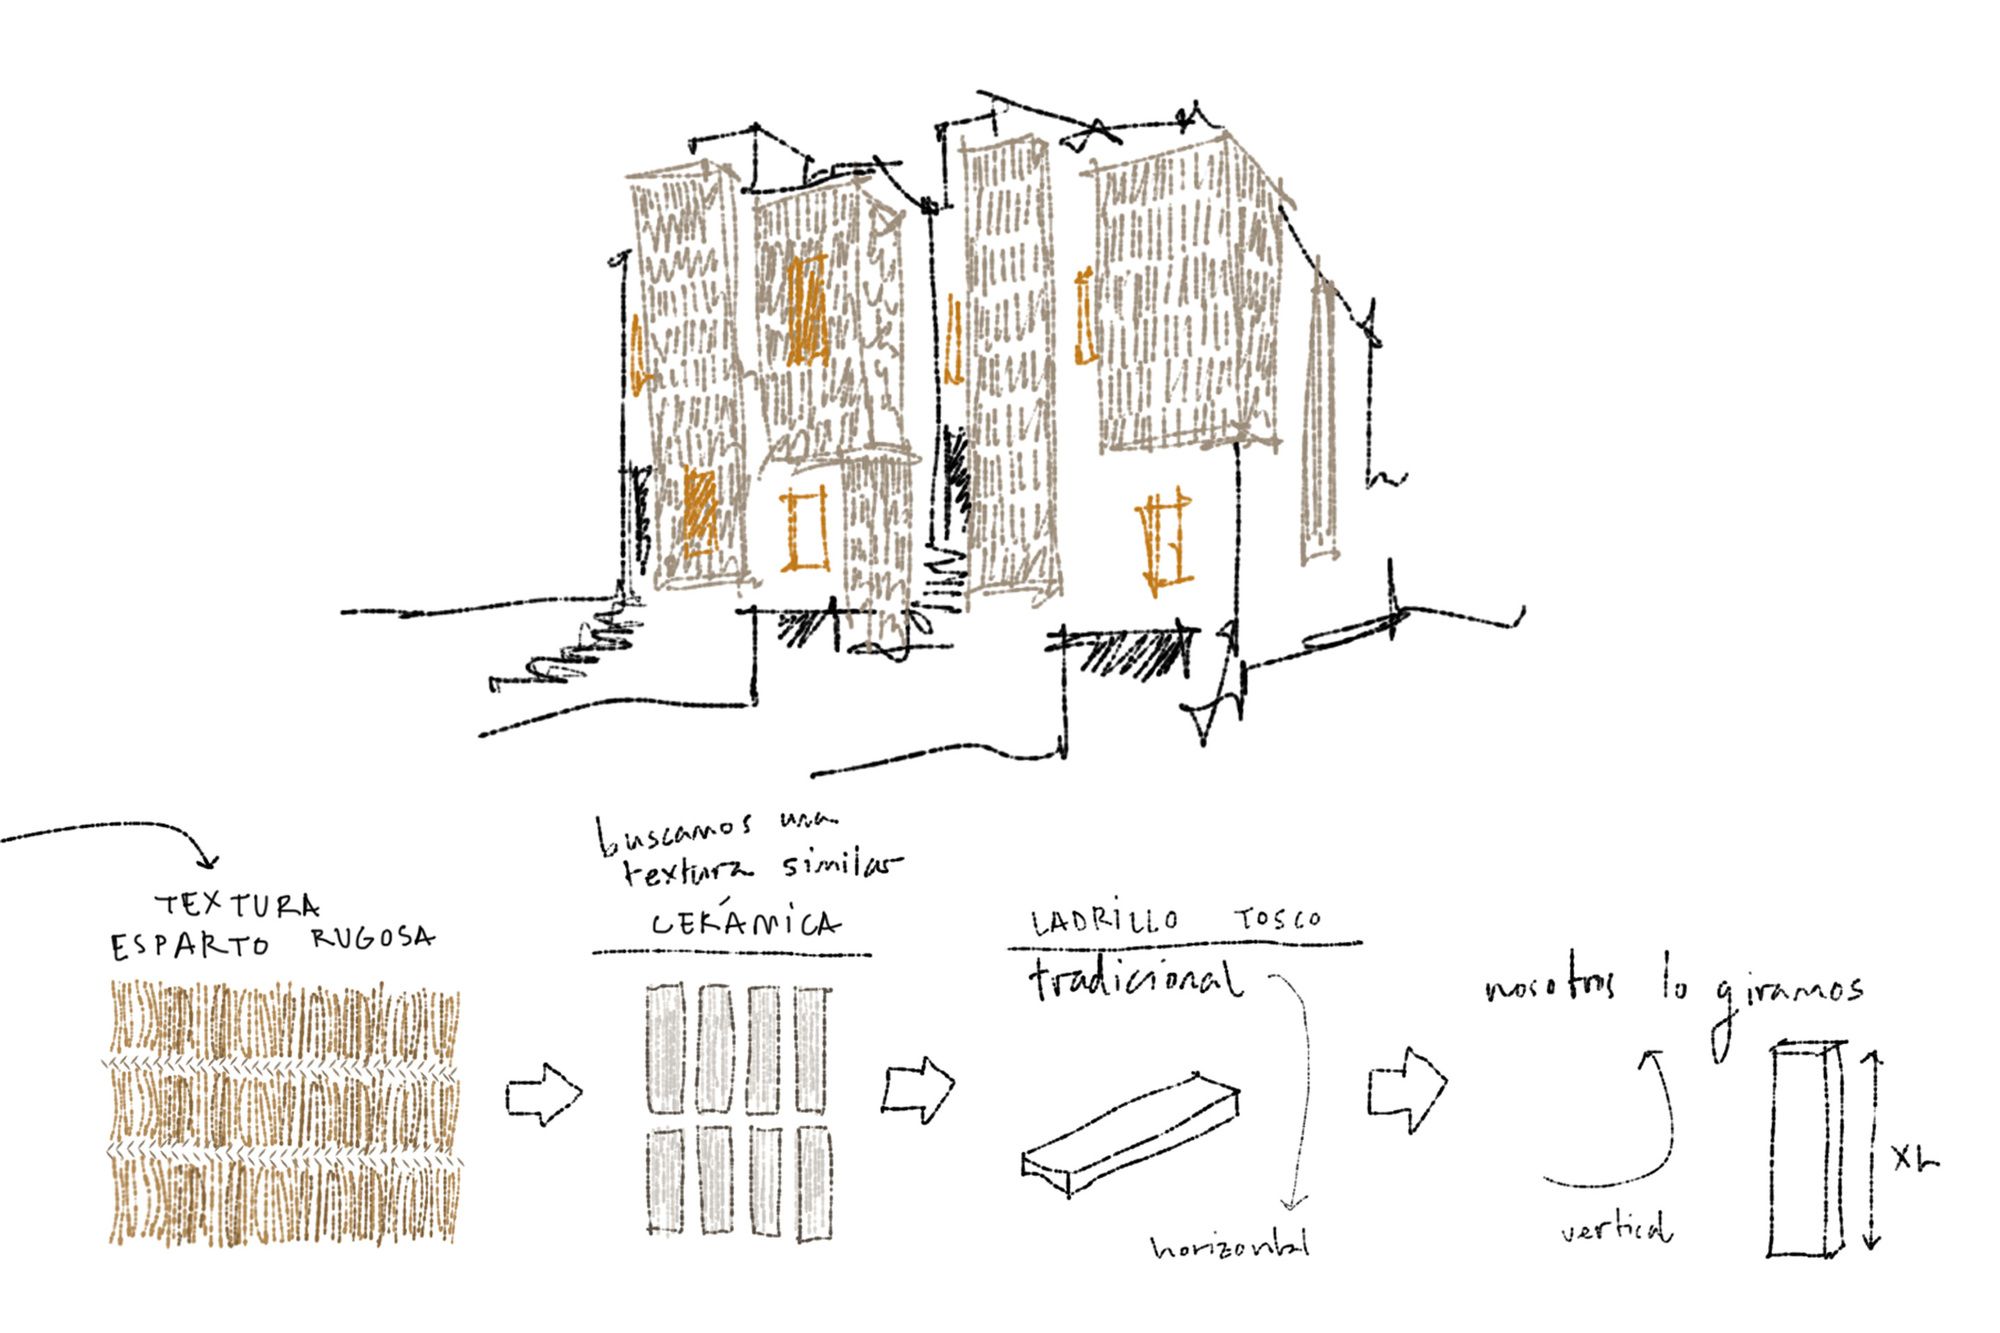 TEXTURA
ESPARTO RUGOSA
buscamos una
textura similar
CERÁMICA
LADRILLO TOSCO
tradicional
horizontal
nosotros lo giramos
vertical
XL